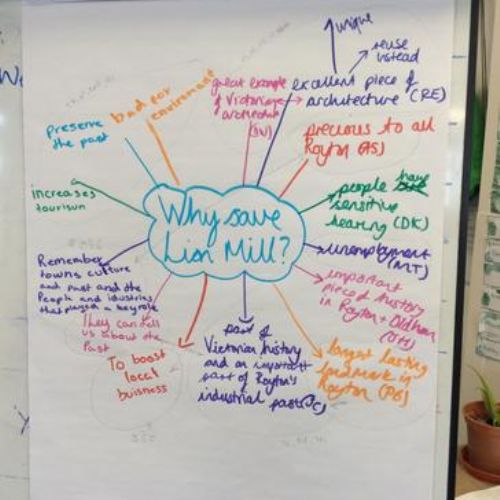 unique
reuse
instead
excellent piece of
architecture (RE)
great example
of Victorian
architecture
bad for
environment
Preserve
the past
precious to all
Royton (AS)
people have
sensitive
hearing (DK)
increases
tourism
Why save
Lion Mill?
unemployment
(MT)
important
piece of history
in Royton + Oldham
Remember
towns culture
and past and the
People and idustries
that played a key role
They can tell
us about the
Past
To boost
local
buisness
part of
Victorian history
and an important
part of Royton's
industrial past
longest lasting
landmark in
Royton (PG)